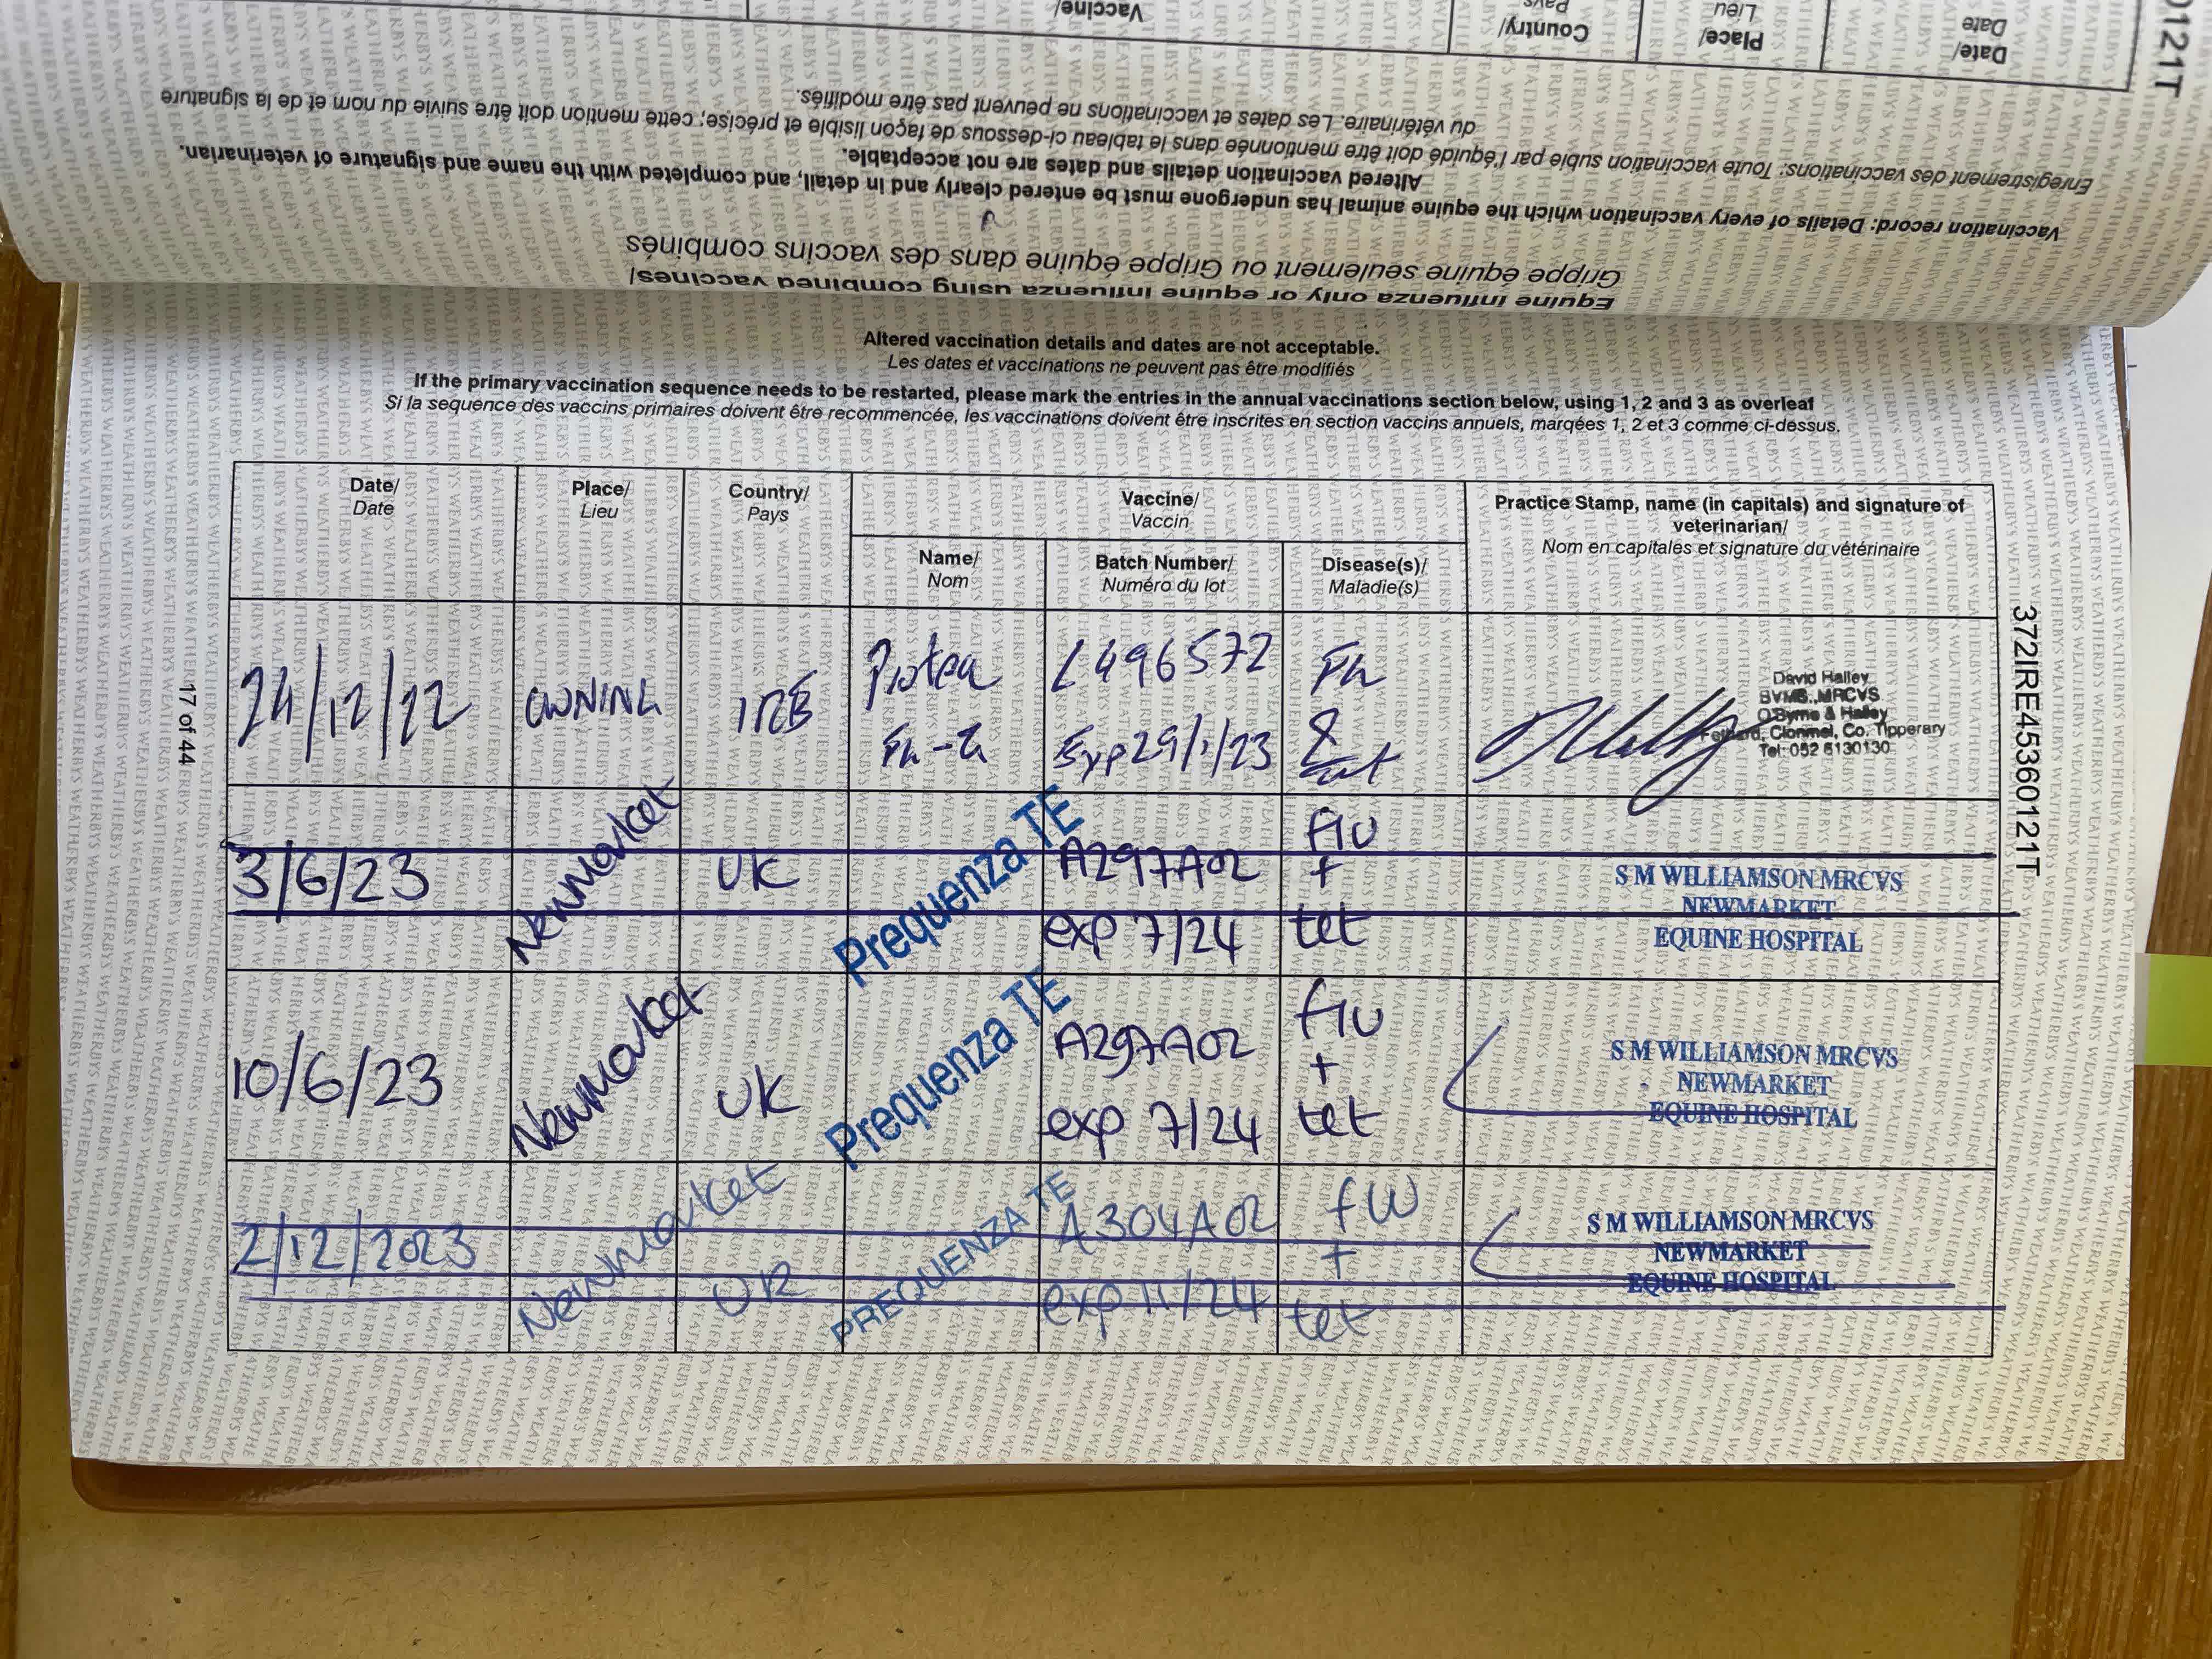 Date/
Date
Place/
Lieu
Country/
Pays
Vaccine/
0121T
Vaccination record: Details of every vaccination which the equine animal has undergone must be entered clearly and in detail, and completed with the name and signature of veterinarian.
Altered vaccination details and dates are not acceptable.
Enregistrement des vaccinations: Toute vaccination subie par l'équidé doit être mentionnée dans le tableau ci-dessous de façon lisible et précise, cette mention doit être suivie du nom et de la signature
du vétérinaire. Les dates et vaccinations ne peuvent pas être modifiés.
Equine influenza only or equine influenza using combined vaccines/
Grippe équine seulement ou Grippe équine dans des vaccins combinés
Altered vaccination details and dates are not acceptable.
Les dates et vaccinations ne peuvent pas être modifiés
If the primary vaccination sequence needs to be restarted, please mark the entries in the annual vaccinations section below, using 1, 2 and 3 as overleaf
Si la sequence des vaccins primaires doivent être recommencée, les vaccinations doivent être inscrites en section vaccins annuels, marqées 1, 2 et 3 comme ci-dessus.
Date/
Date
Place/
Lieu
Country/
Pays
Vaccine/
Vaccin
Name/
Nom
Batch Number/
Numéro du lot
Disease(s)/
Maladie(s)
Practice Stamp, name (in capitals) and signature of
veterinarian/
Nom en capitales et signature du vétérinaire
24/12/22
IRE
L496572
Exp 29/1/23
David Halley
BVMS., MRCVS
O'Byrne & Halley
Fethard, Clonmel, Co. Tipperary
Tel: 052 6130130
3/6/23
Newmarket
UK
Prequenza TE
A297A02
exp 7/24
flu
+
tet
S M WILLIAMSON MRCVS
NEWMARKET
EQUINE HOSPITAL
10/6/23
Newmarket
UK
Prequenza TE
A297A02
exp 7/24
flu
+
tet
S M WILLIAMSON MRCVS
NEWMARKET
EQUINE HOSPITAL
2/12/2023
Newmarket
UK
PREQUENZA TE
A304A02
exp 11/24
flu
+
tet
S M WILLIAMSON MRCVS
NEWMARKET
EQUINE HOSPITAL
17 of 44
372IRE45360121T